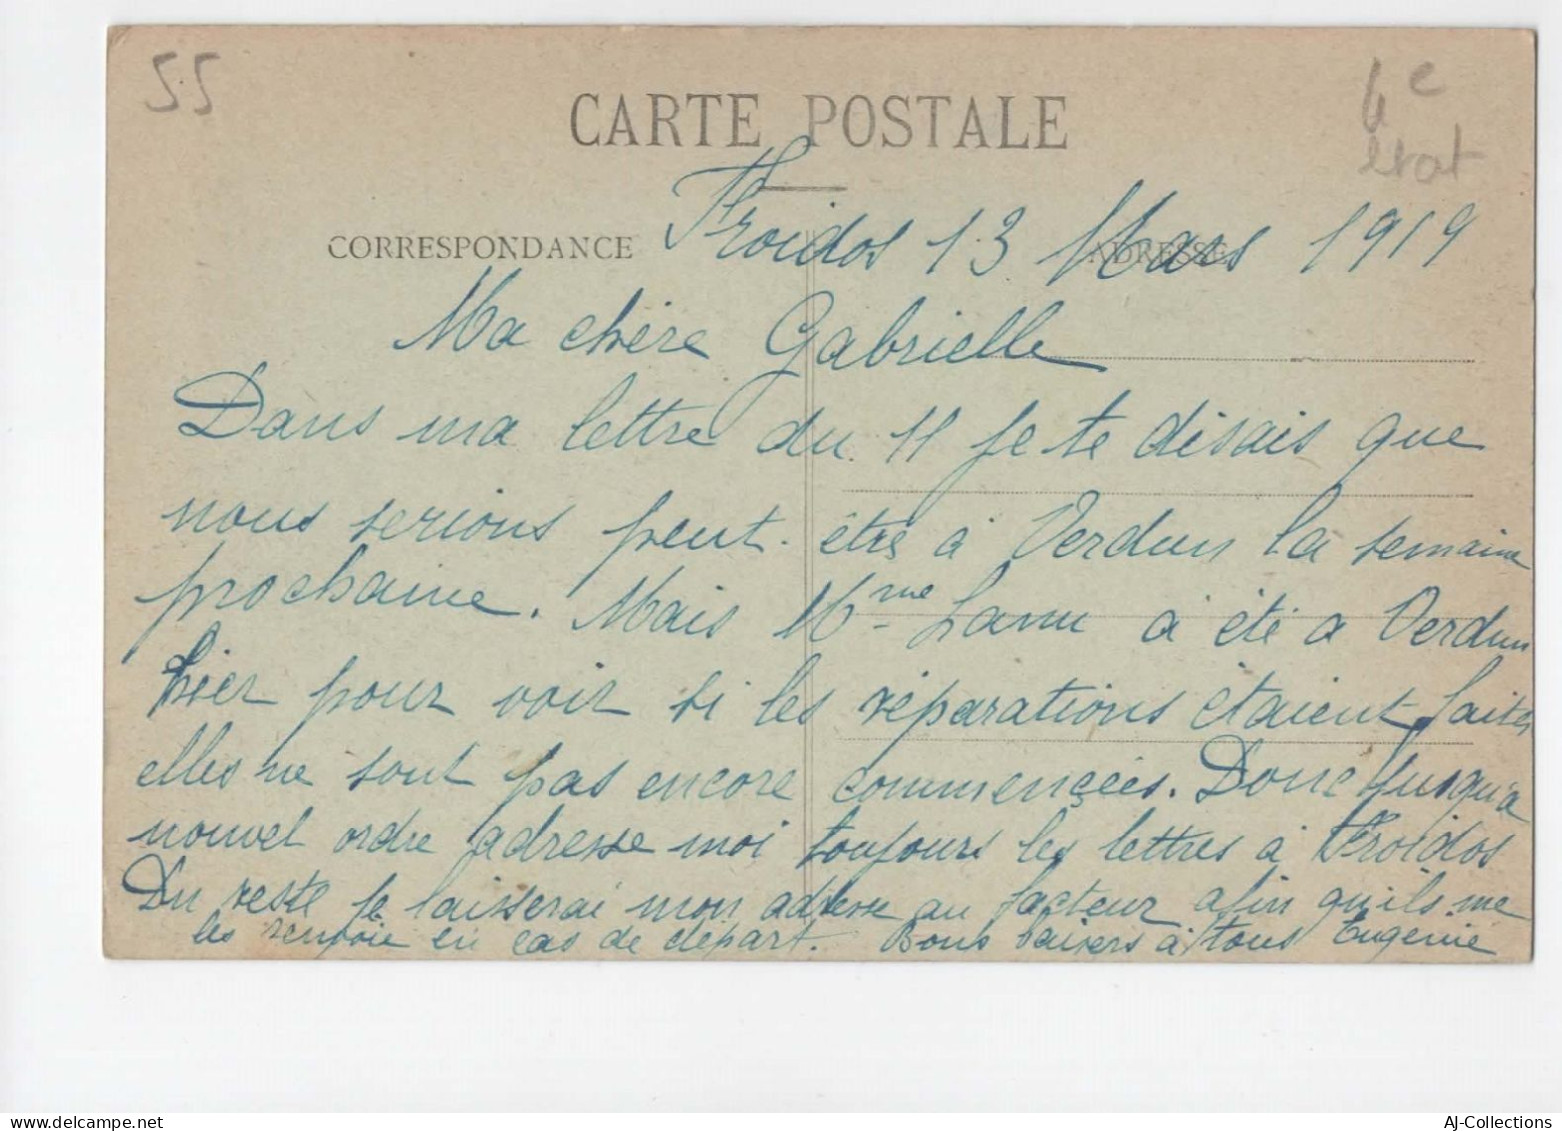 55
6e
état
CARTE POSTALE
CORRESPONDANCE
ADRESSE
Froidos 13 Mars 1919
Ma chère Gabrielle
Dans ma lettre du 11 je te disais que
nous serions peut-être à Verdun la semaine
prochaine. Mais Mme Lamu a été a Verdun
hier pour voir si les réparations étaient faites
elles ne sont pas encore commencées. Donc jusqu'a
nouvel ordre adresse moi toujours les lettres à Froidos
Du reste je laisserai mon adresse au facteur afin qu'ils me
les renvoie en cas de départ. Bons baisers à tous Eugénie
AJ-Collections